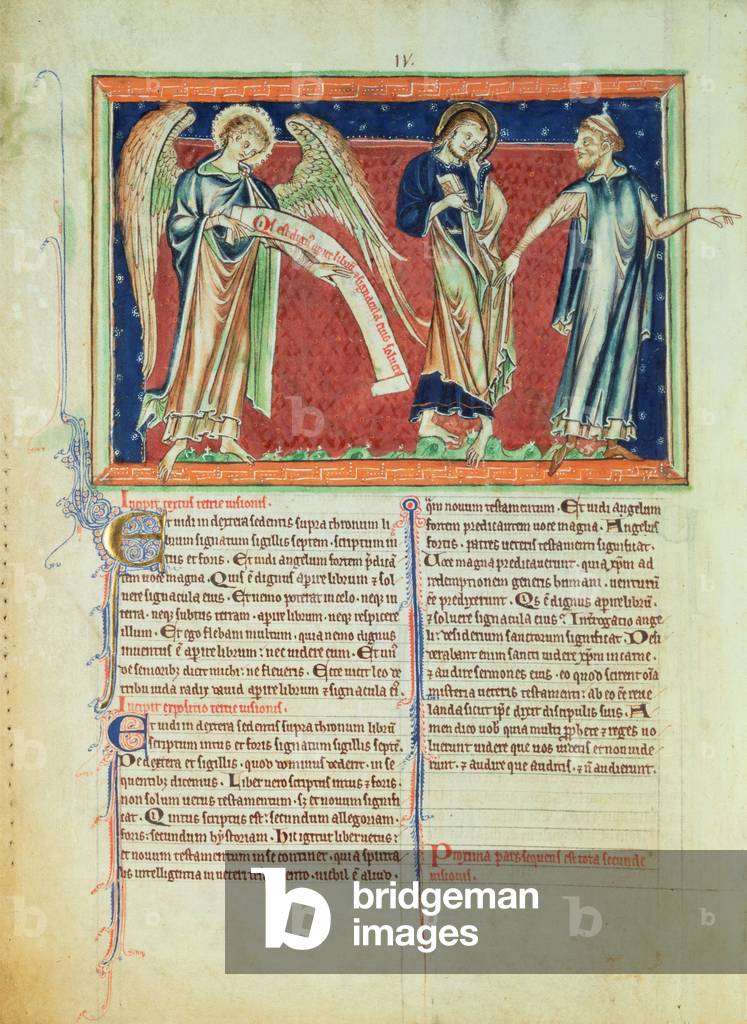 IV.
Q's est dign' apire libru
& signacula eius soluere
Incipit textus tercie uisionis.
Et uidi in dextera sedentis supra thronum li
brum signatum sigillis septem. scriptum in
tus et foris. Et uidi angelum fortem p̄dicā
tem uoce magna. Quis ē dignus apire librum ⁊ sol
uere signacula eius. Et nemo poterat in celo. neqȝ in
terra. neqȝ subtus terram. apire librum. neqȝ respicere
illum. Et ego flebam multum. quia nemo dignus
inuentus ē apire librum: nec uidere eum. Et un'
de senioribȝ dicit michi: ne fleueris. Ecce uicit leo de
tribu iuda radix dauid apire librum ⁊ signacula ei'.
Incipit expositio tercie uisionis.
Et uidi in dextera sedentis supra thronum librū
scriptum intus et foris signatum sigillis septē.
De dextera et sigillis. quod dominus dederit. in se
quentibȝ dicemus. Liber uero scriptus intus ⁊ foris.
non solum uetus testamentum. sȝ et nouum signifi
cat. Qui intus scriptus est: secundum allegoriam.
foris: secundum hystoriam. Hic igitur liber uetus:
et nouum testamentum in se continet. quia spirita
lis intelligentia in ueteri nichil ē aliud.
q̄m nouum testamentum. Et uidi angelum
fortem predicantem uoce magna. Angelus
fortis. patres ueteris testamenti significat.
Uoce magna predicauerunt. quia xp̄m ad
redemptionem generis humani. uenturū
ēē predixerunt. Q's ē dignus apire librū.
⁊ soluere signacula eius? Interrogatio ange
li: desiderium sanctorum significat. Desi
derabant enim sancti uidere xp̄m in carne.
⁊ audire sermones eius. eo quod scirent oīa
misteria ueteris testamenti: ab eo ēē reue
landa sicut ip̄e dixit discipulis suis. A
men dico uob' quia multi ꝓphete ⁊ reges uo
luerunt uidere que uos uidetis et non uide
runt. ⁊ audire que auditis. ⁊ ñ audierunt.
Proxima pars sequens est tota secunde
uisionis.
b bridgeman
images